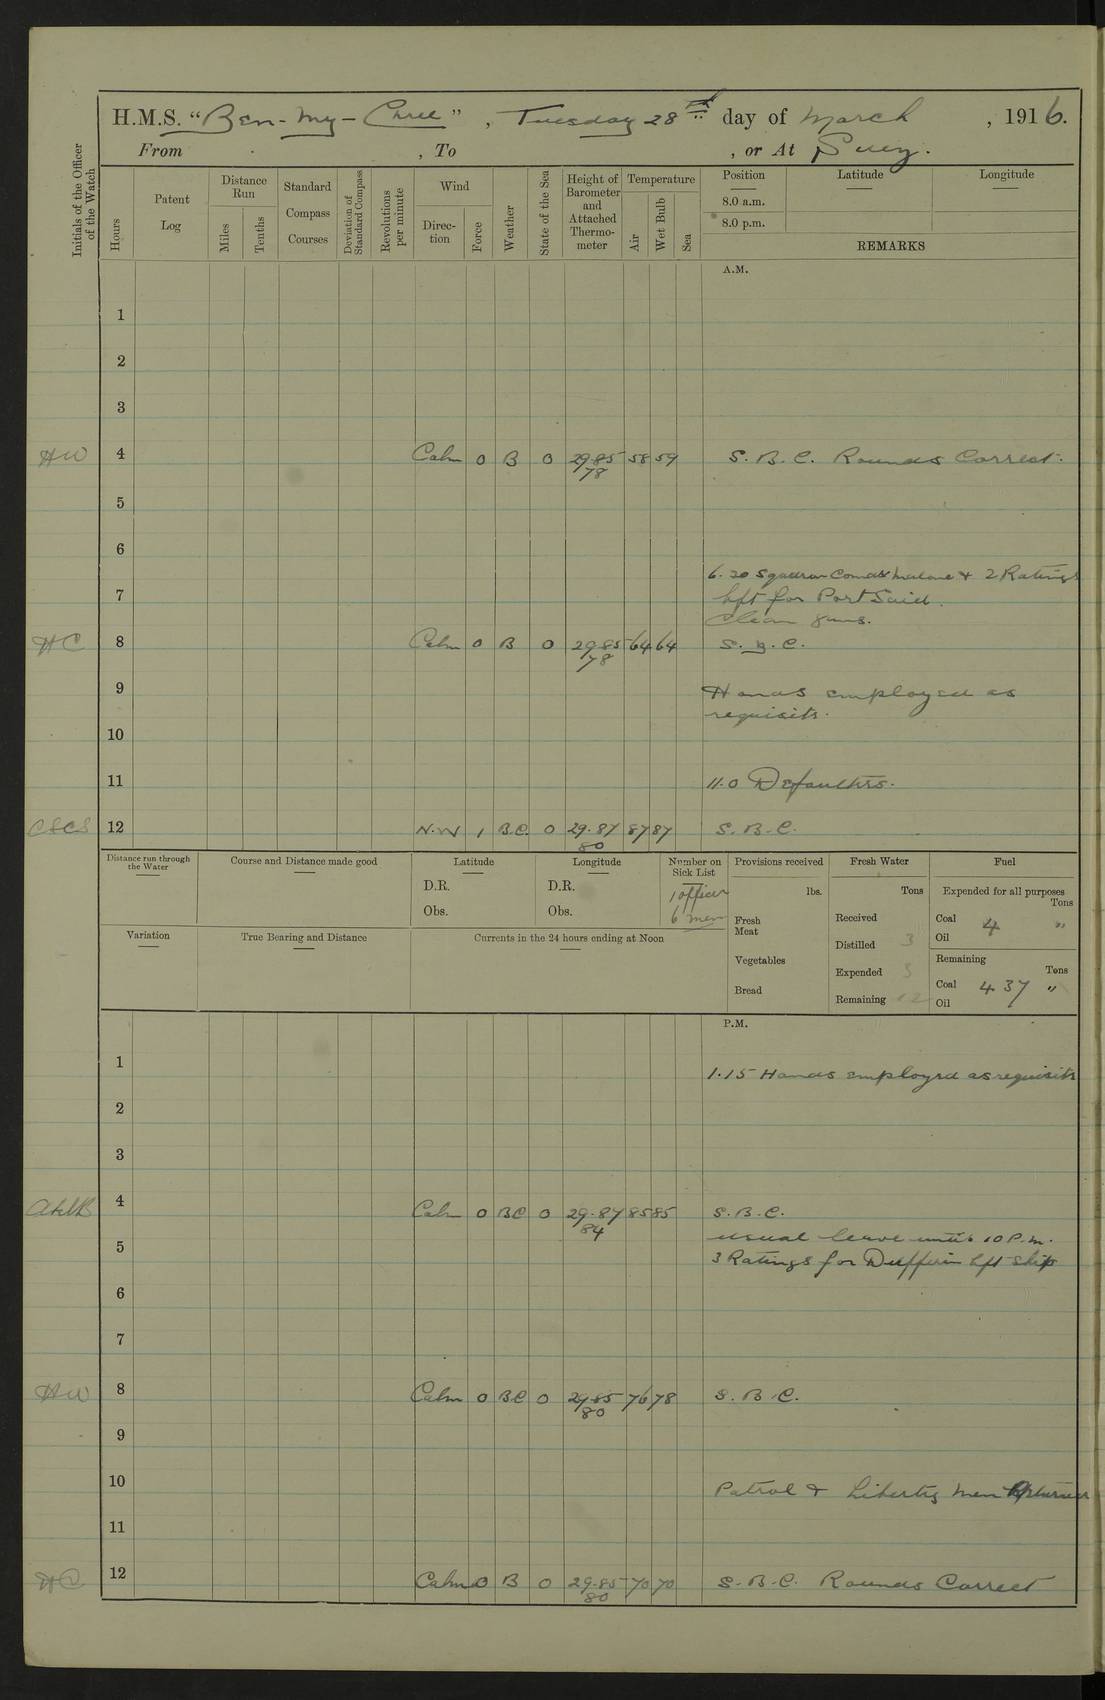 H.M.S. "Ben-my-Chree", Tuesday 28th day of March, 1916.
From , To , or At Suez.
Initials of the Officer of the Watch
Hours
Patent Log
Distance Run
Miles
Tenths
Standard Compass Courses
Deviation of Standard Compass
Revolutions per minute
Wind
Direc-tion
Force
Weather
State of the Sea
Height of Barometer and Attached Thermo-meter
Temperature
Air
Wet Bulb
Sea
Position
Latitude
Longitude
8.0 a.m.
8.0 p.m.
REMARKS
A.M.
1
2
3
HW 4 Calm 0 B 0 29.85 58 59 S.B.C. Rounds Correct.
78
5
6
6.20 Squadron Comdr Malone + 2 Ratings
7 left for Port Said.
Clean guns.
HC 8 Calm 0 B 0 29.85 64 64 S.B.C.
78
9 Hands employed as
requisite.
10
11 11.0 Defaulters.
CSCS 12 N.W 1 B.C. 0 29.87 87 87 S.B.C.
80
Distance run through the Water
Course and Distance made good
Latitude
D.R.
Obs.
Longitude
D.R.
Obs.
Number on Sick List
1 officer
6 men
Provisions received
lbs.
Fresh Meat
Vegetables
Bread
Fresh Water
Tons
Received
Distilled 3
Expended 3
Remaining 12
Fuel
Expended for all purposes
Tons
Coal 4 "
Oil
Remaining
Tons
Coal 437 "
Oil
Variation
True Bearing and Distance
Currents in the 24 hours ending at Noon
P.M.
1 1.15 Hands employed as requisite
2
3
4 Calm 0 BC 0 29.87 85 85 S.B.C.
84
usual leave until 10 P.m.
5 3 Ratings for Dufferin left ship
6
7
HW 8 Calm 0 BC 0 29.85 76 78 S.B.C.
80
9
10 Patrol + Liberty men Returned
11
HC 12 Calm 0 B 0 29.85 70 70 S.B.C. Rounds Correct
80